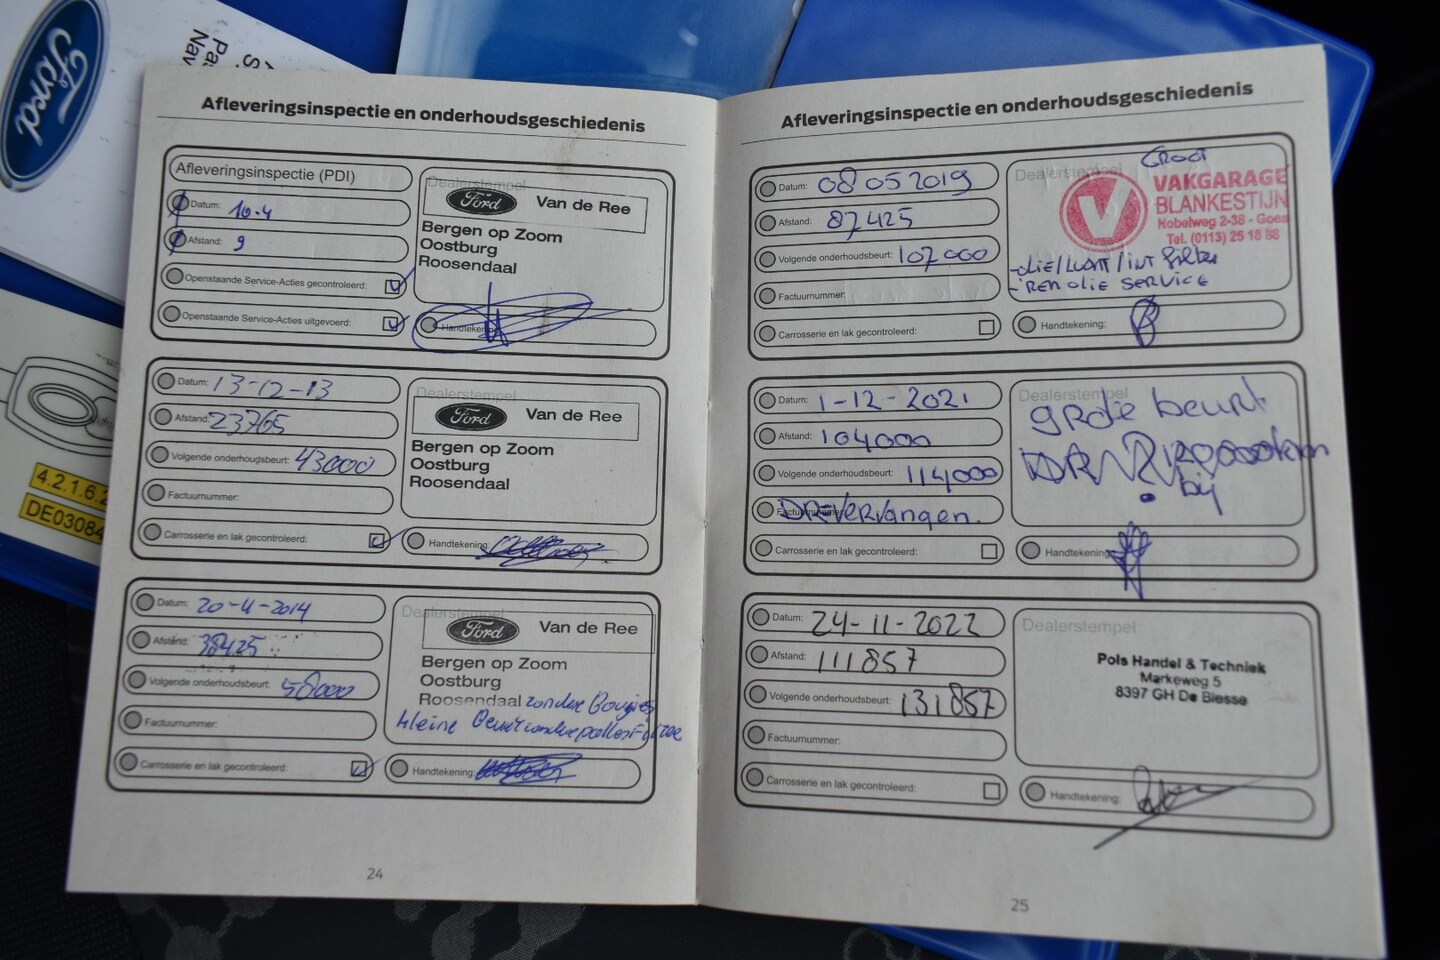 Ford
4.2.1.6.2
DE03084
Afleveringsinspectie en onderhoudsgeschiedenis
Afleveringsinspectie (PDI)
Datum: 10-4
Afstand: 9
Openstaande Service-Acties gecontroleerd:
Openstaande Service-Acties uitgevoerd:
Dealerstempel
Ford Van de Ree
Bergen op Zoom
Oostburg
Roosendaal
Handtekening:
Datum: 13-12-13
Afstand: 23765
Volgende onderhoudsbeurt: 43000
Factuurnummer:
Carrosserie en lak gecontroleerd:
Dealerstempel
Ford Van de Ree
Bergen op Zoom
Oostburg
Roosendaal
Handtekening:
Datum: 20-11-2014
Afstand: 38425
Volgende onderhoudsbeurt: 58000
Factuurnummer:
Carrosserie en lak gecontroleerd:
Dealerstempel
Ford Van de Ree
Bergen op Zoom
Oostburg
Roosendaal zonder Bougies
kleine Beurt zonder
Handtekening:
24
Afleveringsinspectie en onderhoudsgeschiedenis
Datum: 08 05 2019
Afstand: 87425
Volgende onderhoudsbeurt: 107000
Factuurnummer:
Carrosserie en lak gecontroleerd:
GROOT
Dealerstempel
VAKGARAGE
BLANKESTIJN
Nobelweg 2-38 - Goes
Tel. (0113) 25 18 88
-OLIE/LUCHT/INT filter
-REMOLIE SERVICE
Handtekening:
Datum: 1-12-2021
Afstand: 104000
Volgende onderhoudsbeurt: 114000
Factuurnummer: DR Vervangen.
Carrosserie en lak gecontroleerd:
Dealerstempel
grote beurt
DR
bij
Handtekening:
Datum: 24-11-2022
Afstand: 111857
Volgende onderhoudsbeurt: 131857
Factuurnummer:
Carrosserie en lak gecontroleerd:
Dealerstempel
Pols Handel & Techniek
Markeweg 5
8397 GH De Blesse
Handtekening:
25